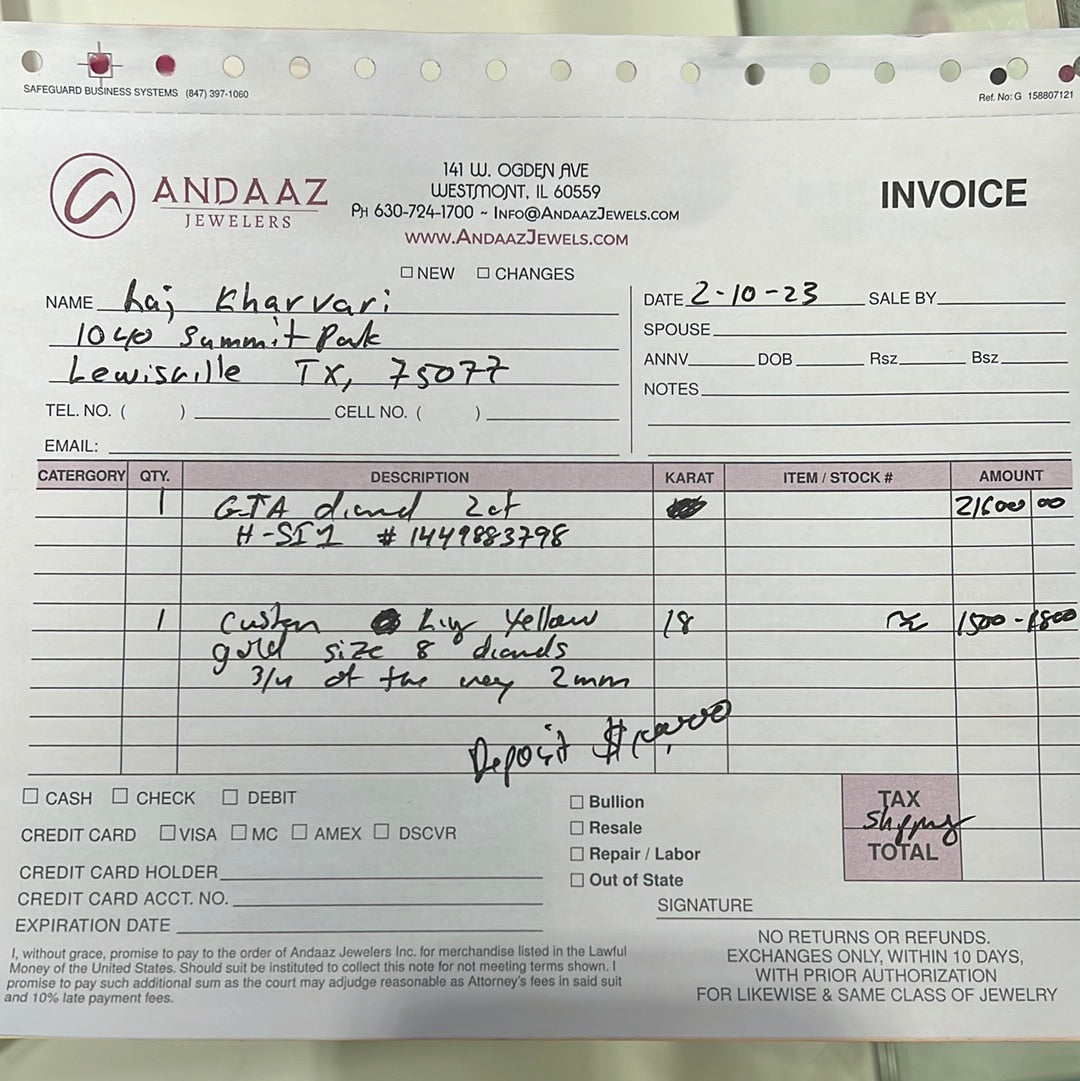 SAFEGUARD BUSINESS SYSTEMS (847) 397-1060
Ref. No: G 158807121
ANDAAZ
JEWELERS
141 W. OGDEN AVE
WESTMONT, IL 60559
PH 630-724-1700 ~ INFO@ANDAAZJEWELS.COM
WWW.ANDAAZJEWELS.COM
INVOICE
☐ NEW ☐ CHANGES
NAME Raj Kharvari
1040 Summit Park
Lewisville TX, 75077
TEL. NO. ( ) CELL NO. ( )
EMAIL:
DATE 2-10-23 SALE BY
SPOUSE
ANNV. DOB Rsz Bsz
NOTES
CATERGORY QTY. DESCRIPTION KARAT ITEM / STOCK # AMOUNT
1 GIA diamond 2ct 21600 00
H-SI1 # 1449883798
1 Custom Yellow 18 1500 - 1800
gold size 8 diamonds
3/4 of the way 2mm
Deposit
☐ CASH ☐ CHECK ☐ DEBIT
CREDIT CARD ☐ VISA ☐ MC ☐ AMEX ☐ DSCVR
CREDIT CARD HOLDER
CREDIT CARD ACCT. NO.
EXPIRATION DATE
☐ Bullion
☐ Resale
☐ Repair / Labor
☐ Out of State
TAX
Shipping
TOTAL
SIGNATURE
I, without grace, promise to pay to the order of Andaaz Jewelers Inc. for merchandise listed in the Lawful
Money of the United States. Should suit be instituted to collect this note for not meeting terms shown. I
promise to pay such additional sum as the court may adjudge reasonable as Attorney's fees in said suit
and 10% late payment fees.
NO RETURNS OR REFUNDS.
EXCHANGES ONLY, WITHIN 10 DAYS,
WITH PRIOR AUTHORIZATION
FOR LIKEWISE & SAME CLASS OF JEWELRY